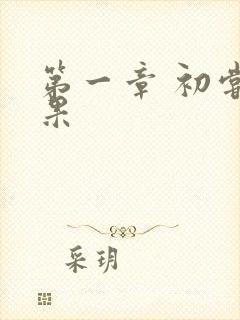 第一章 初尝
果
采玥